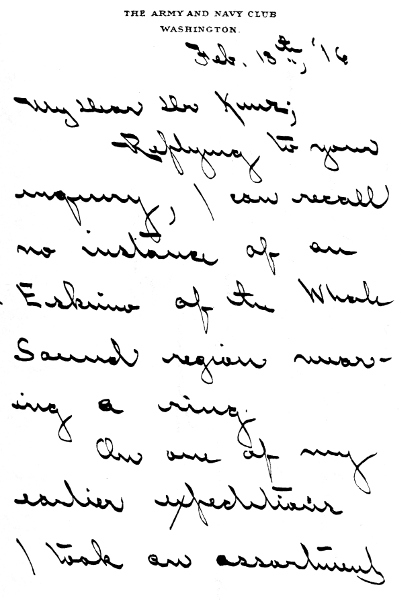 THE ARMY AND NAVY CLUB
WASHINGTON.
Feb. 18th, '16
My dear Dr Kunz;
Replying to your
inquiry, I can recall
no instance of an
Eskimo of the Whale
Sound region wear-
ing a ring.
On one of my
earlier expeditions
I took an assortment